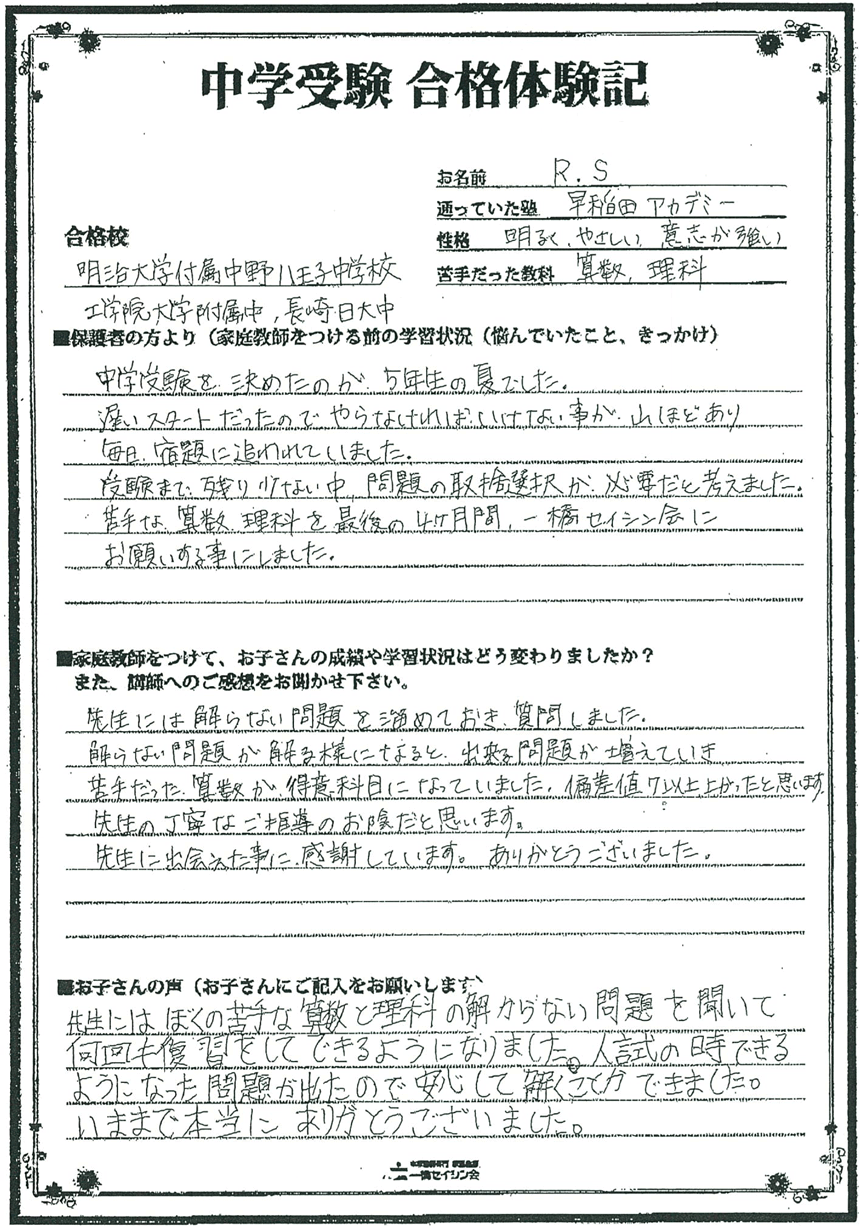 中学受験 合格体験記
お名前 R.S
通っていた塾 早稲田アカデミー
性格 明るく、やさしい、意志が強い
苦手だった教科 算数、理科
合格校
明治大学付属中野八王子中学校
工学院大学附属中、長崎日大中
■保護者の方より（家庭教師をつける前の学習状況（悩んでいたこと、きっかけ）
中学受験を決めたのが、5年生の夏でした。
遅いスタートだったのでやらなければいけない事が山ほどあり
毎日、宿題に追われていました。
受験まで残り少ない中、問題の取捨選択が必要だと考えました。
苦手な算数、理科を最後の4ヶ月間、一橋セイシン会に
お願いする事にしました。
■家庭教師をつけて、お子さんの成績や学習状況はどう変わりましたか？
また、講師へのご感想をお聞かせ下さい。
先生には解らない問題を溜めておき、質問しました。
解らない問題が解る様になると、出来る問題が増えていき
苦手だった算数が、得意科目になっていました。偏差値7以上上がったと思います。
先生の丁寧なご指導のお陰だと思います。
先生に出会えた事に、感謝しています。ありがとうございました。
■お子さんの声（お子さんにご記入をお願いします）
先生にはぼくの苦手な算数と理科の解からない問題を聞いて
何回も復習をしてできるようになりました。入試の時できる
ようになった問題が出たので安心して解くことができました。
いままで本当にありがとうございました。
一橋セイシン会